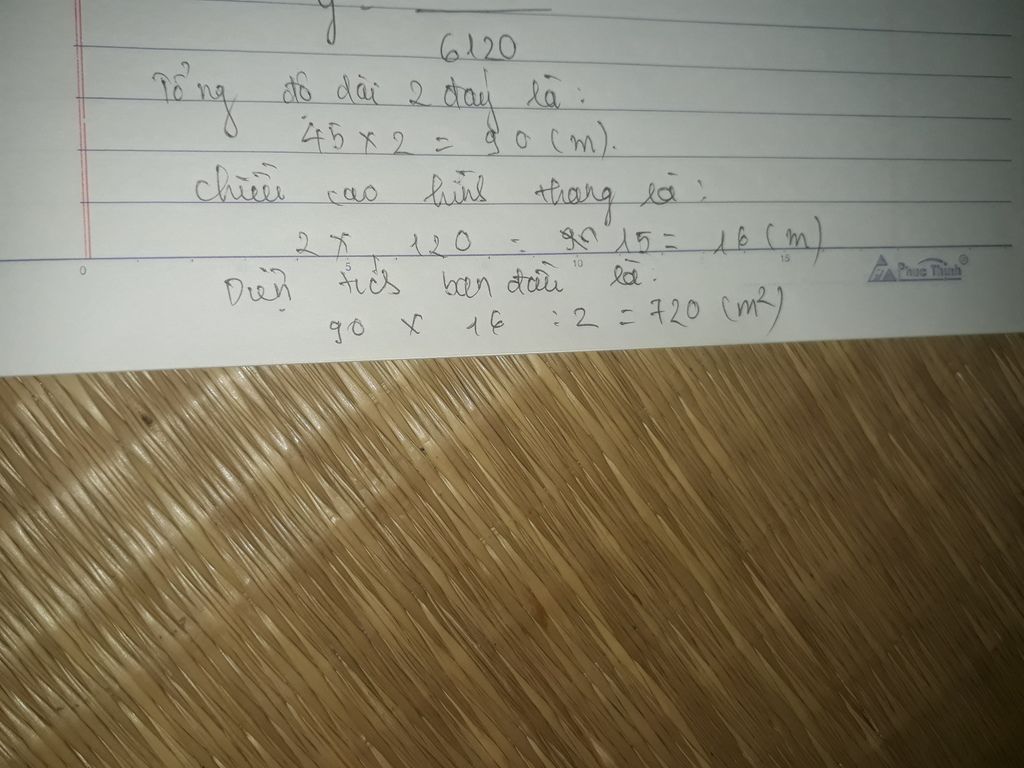 6120
Tổng độ dài 2 đáy là:
45 x 2 = 90 (m).
Chiều cao hình thang là:
2 x 120 : 15 = 16 (m)
0 5 10 15
Phuc Thinh
Diện tích ban đầu là:
90 x 16 : 2 = 720 (m²)